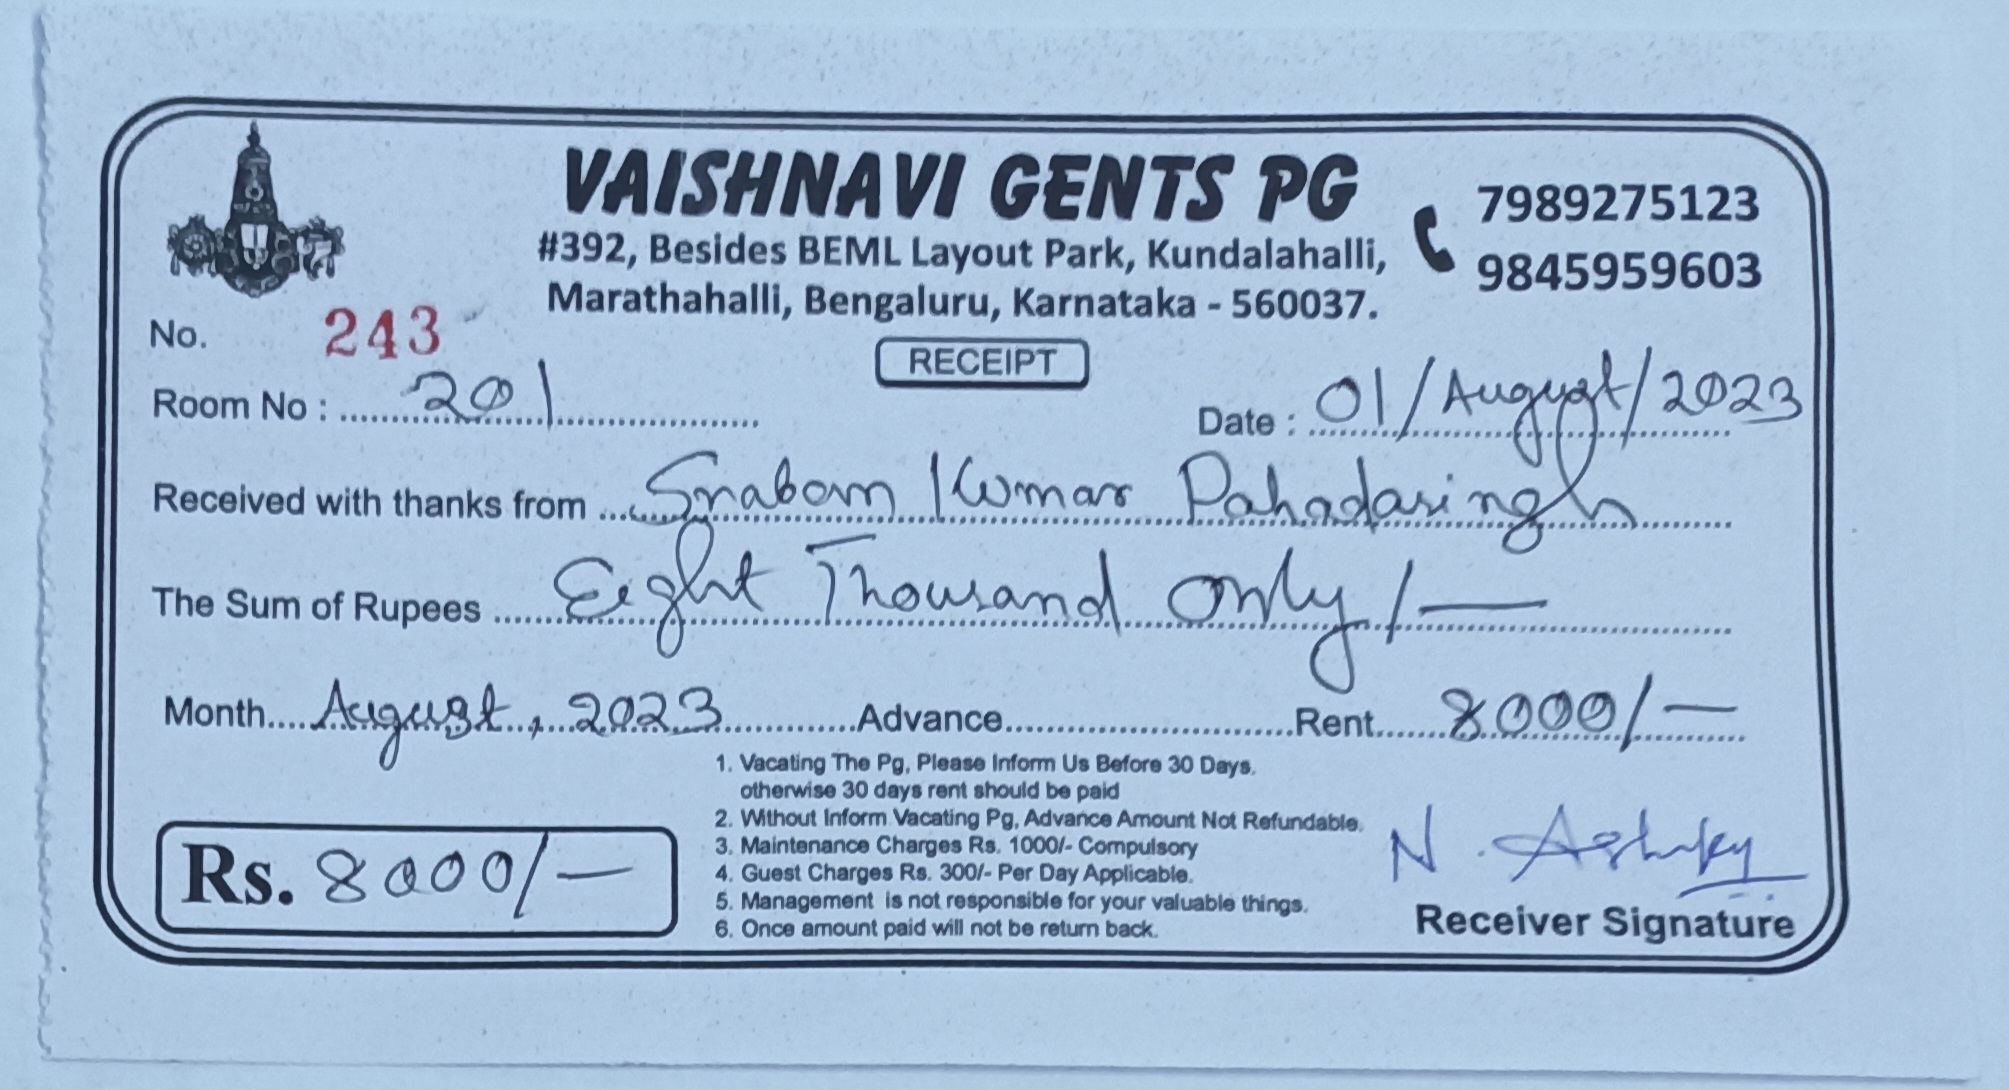 VAISHNAVI GENTS PG
#392, Besides BEML Layout Park, Kundalahalli,
Marathahalli, Bengaluru, Karnataka - 560037.
7989275123
9845959603
No. 243
RECEIPT
Room No : 201
Date : 01/August/2023
Received with thanks from Kumar Pahadasingh
The Sum of Rupees Eight Thousand Only/-
Month August, 2023 Advance Rent 8000/-
1. Vacating The Pg, Please Inform Us Before 30 Days.
otherwise 30 days rent should be paid
2. Without Inform Vacating Pg, Advance Amount Not Refundable.
3. Maintenance Charges Rs. 1000/- Compulsory
4. Guest Charges Rs. 300/- Per Day Applicable.
5. Management is not responsible for your valuable things.
6. Once amount paid will not be return back.
Rs. 8000/-
N.
Receiver Signature